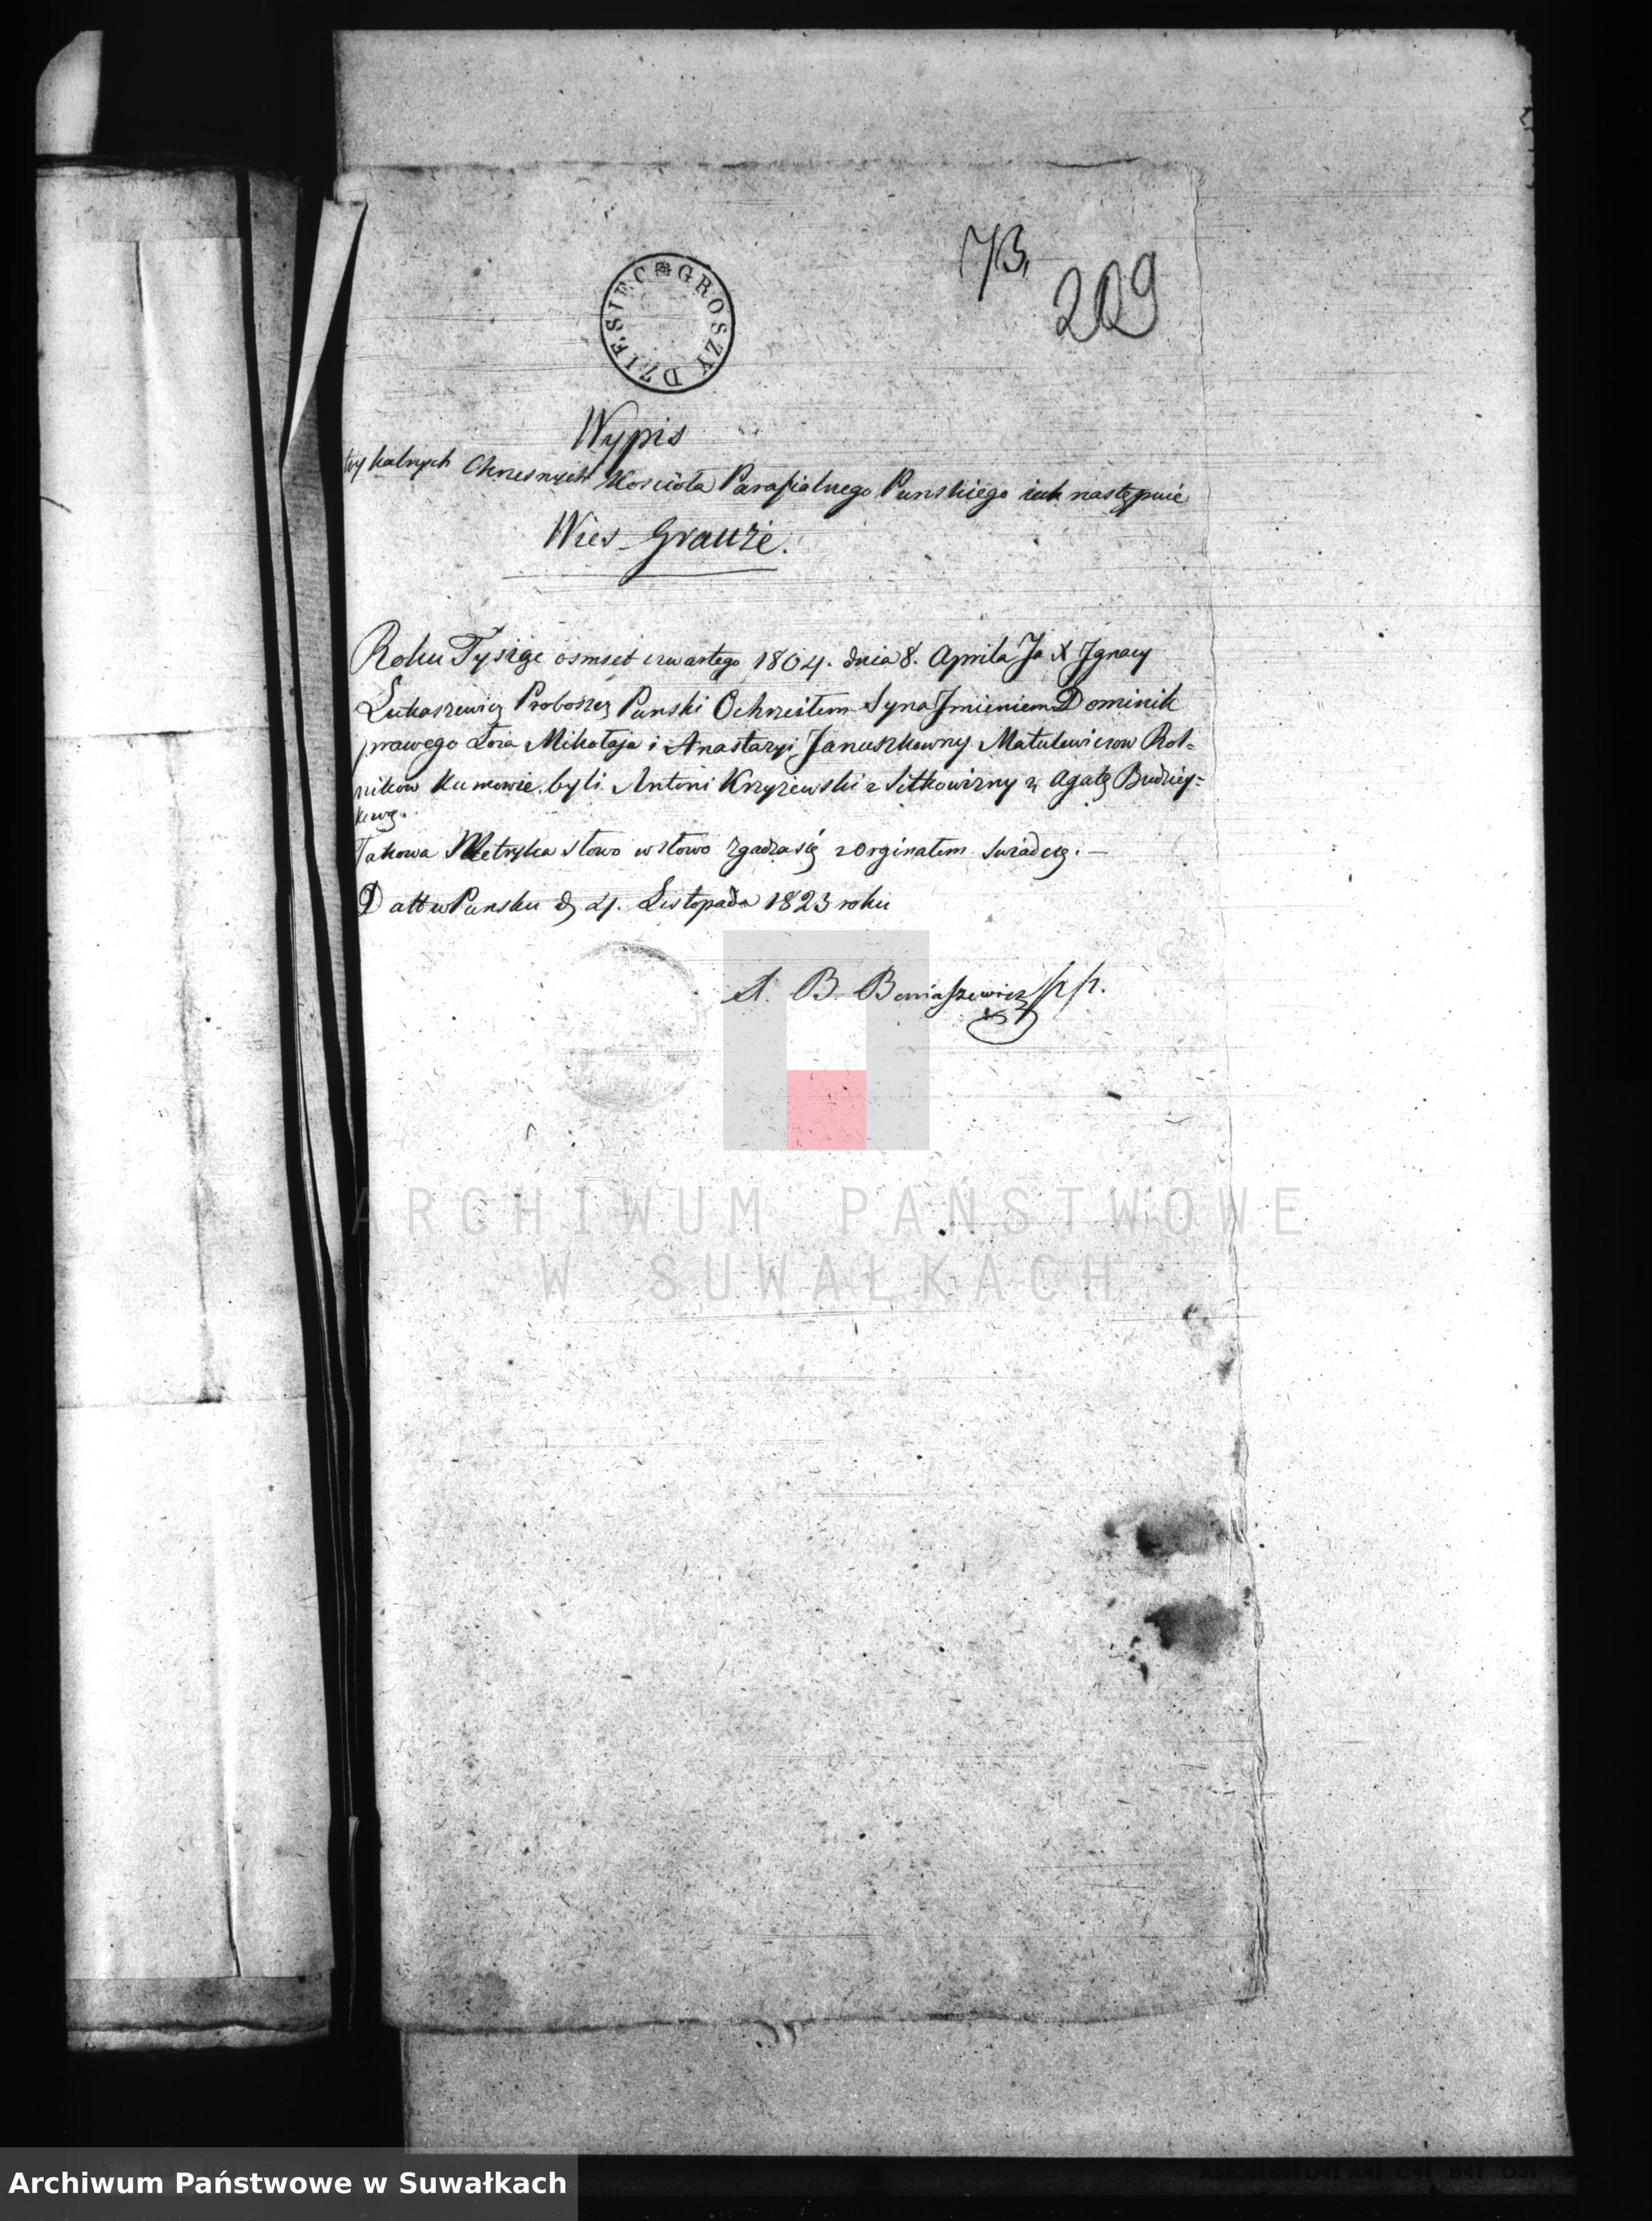 7B.
209
GROSZY DZIESIEC
Wypis
trykalnych Chresnych Kościoła Parafialnego Punskiego iak następuie
Wies Grauże.
Roku Tysiąc osmset czwartego 1804. dnia 8. Aprila Ja X Jgnacy
Łukaszewicz Proboszcz Punski Ochrzciłem Syna Jmieniem Dominik
prawego Łoża Mikołaja i Anastazyi Januszkowny Matulewiczow Rol=
nikow Kumowie byli Antoni Krzyżewski z Sitkowizny z Agatą Budziey=
kową.
Takowa Metryka słowo w słowo zgadza się z Orginałem swiadczę. —
Datt w Punsku d. 4. Listopada 1823 roku
A. B. Beniaszewicz pp.
ARCHIWUM PAŃSTWOWE
W SUWAŁKACH
Archiwum Państwowe w Suwałkach